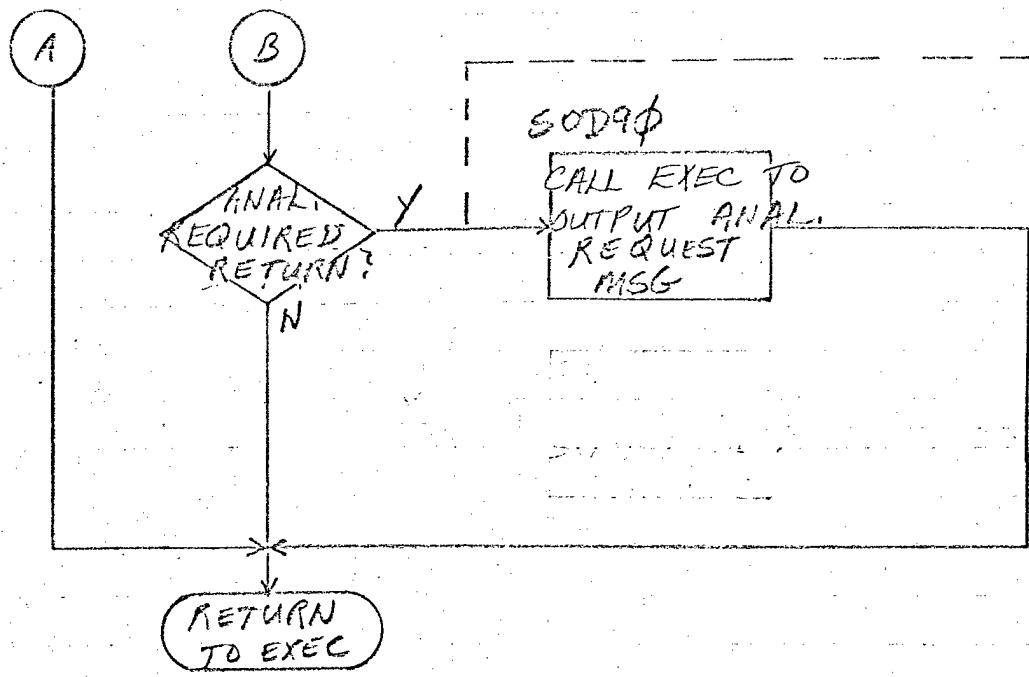 A
B
SOD9Ø
ANAL.
REQUIRED
RETURN?
Y
N
CALL EXEC TO
OUTPUT ANAL.
REQUEST
MSG
RETURN
TO EXEC